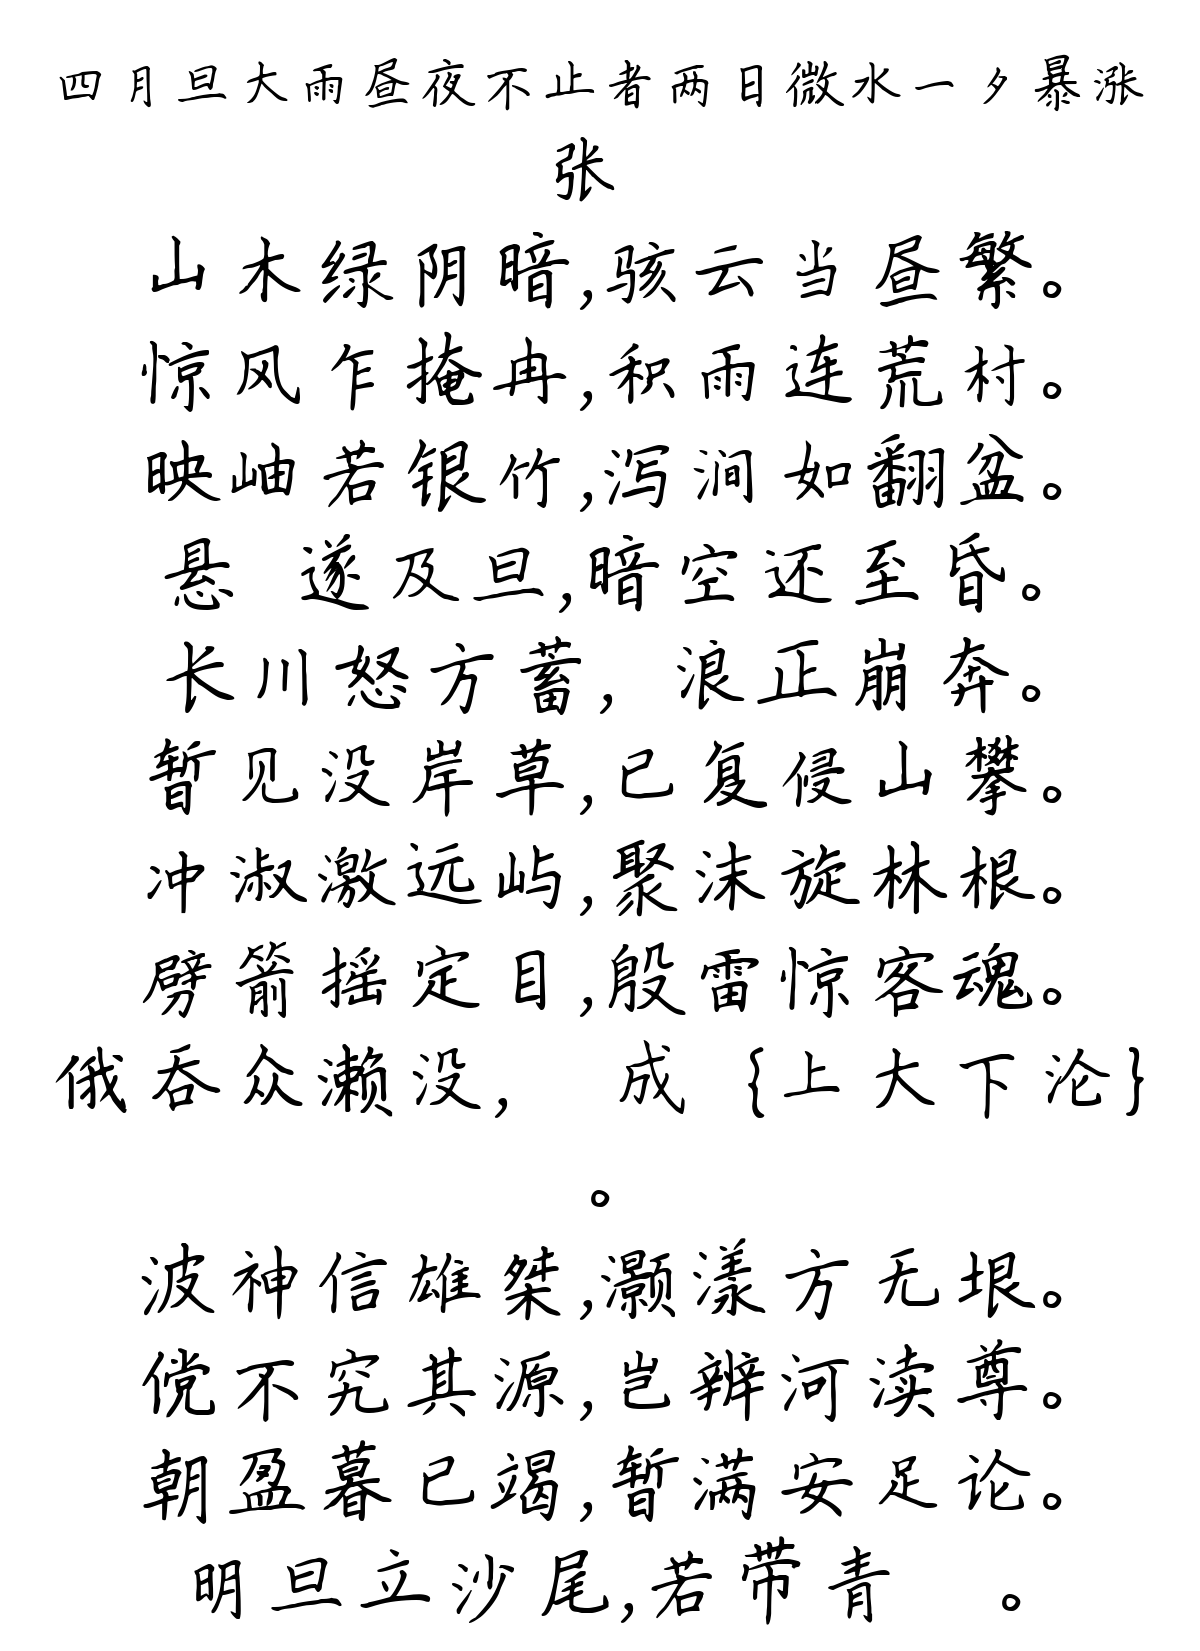 四月旦大雨昼夜不止者两日微水一夕暴涨
张
山木绿阴暗,骇云当昼繁。
惊风乍掩冉,积雨连荒村。
映岫若银竹,泻涧如翻盆。
悬 遂及旦,暗空还至昏。
长川怒方蓄, 浪正崩奔。
暂见没岸草,已复侵山攀。
冲淑激远屿,聚沫旋林根。
劈箭摇定目,殷雷惊客魂。
俄吞众濑没, 成 {上大下沦}
。
波神信雄桀,灏漾方无垠。
傥不究其源,岂辨河渎尊。
朝盈暮已竭,暂满安足论。
明旦立沙尾,若带青 。